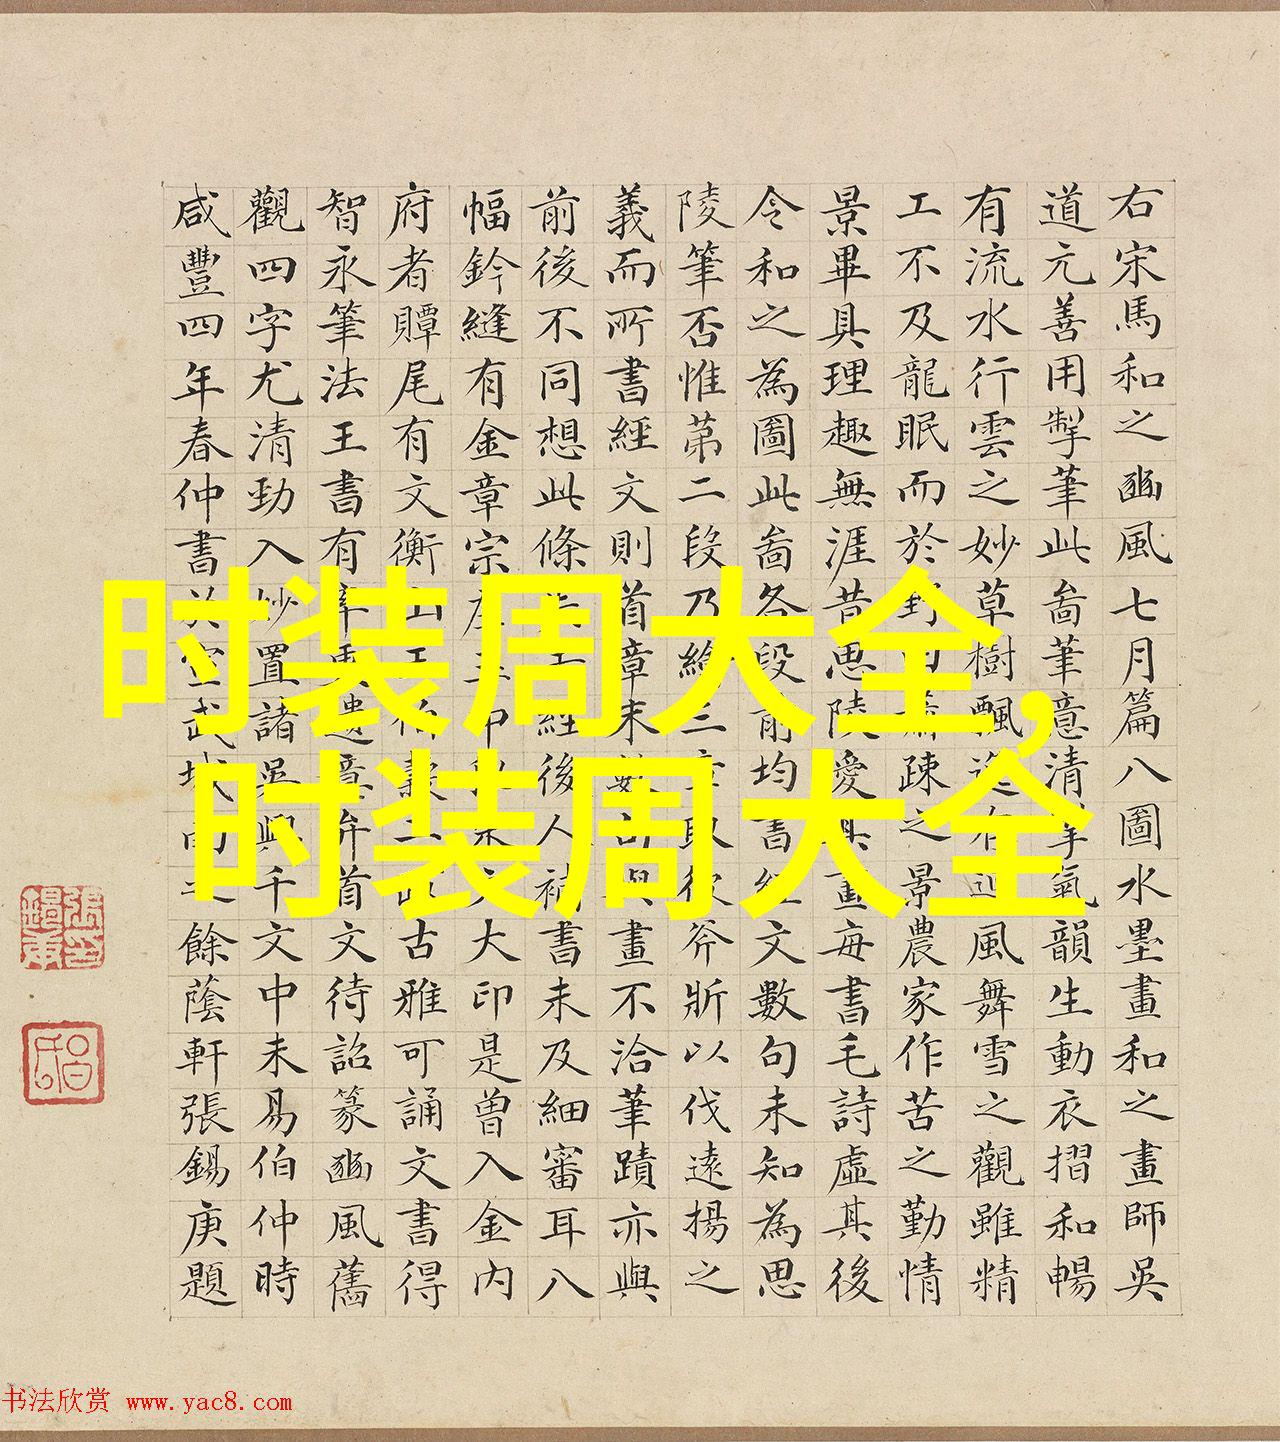 右宋馬和之豳風七月篇八圖水墨畫和之畫師吳
道元善用掣筆此啚筆意清氣韻生動衣摺和暢
有流水行雲之妙草樹飄有迎風舞雪之觀雖精
工不及龍眠而於疎之景農家作苦之勤情
景畢具理趣無涯昔思陵愛其畫每書毛詩虛其後
令和之為圖此啚各段前均書經文數句未知為思
陵筆否惟第二段乃繪三章取彼斧斨以伐遠揚之
義而所書經文則首章末數句與畫不洽筆蹟亦與
前後不同想此條經後人補書未及細審耳八
幅鈐縫有金章宗印大印是曾入金內
府者贉尾有文衡山王古雅可誦文書得
智永筆法王書有率更遺意弁首文待詔篆豳風舊
觀四字尤清勁入妙置諸吳興千文中未易伯仲時
咸豐四年春仲書於宣武城南之餘蔭軒張錫庚題
时装周大全,
时装周大全
书法欣赏 www.yac8.com